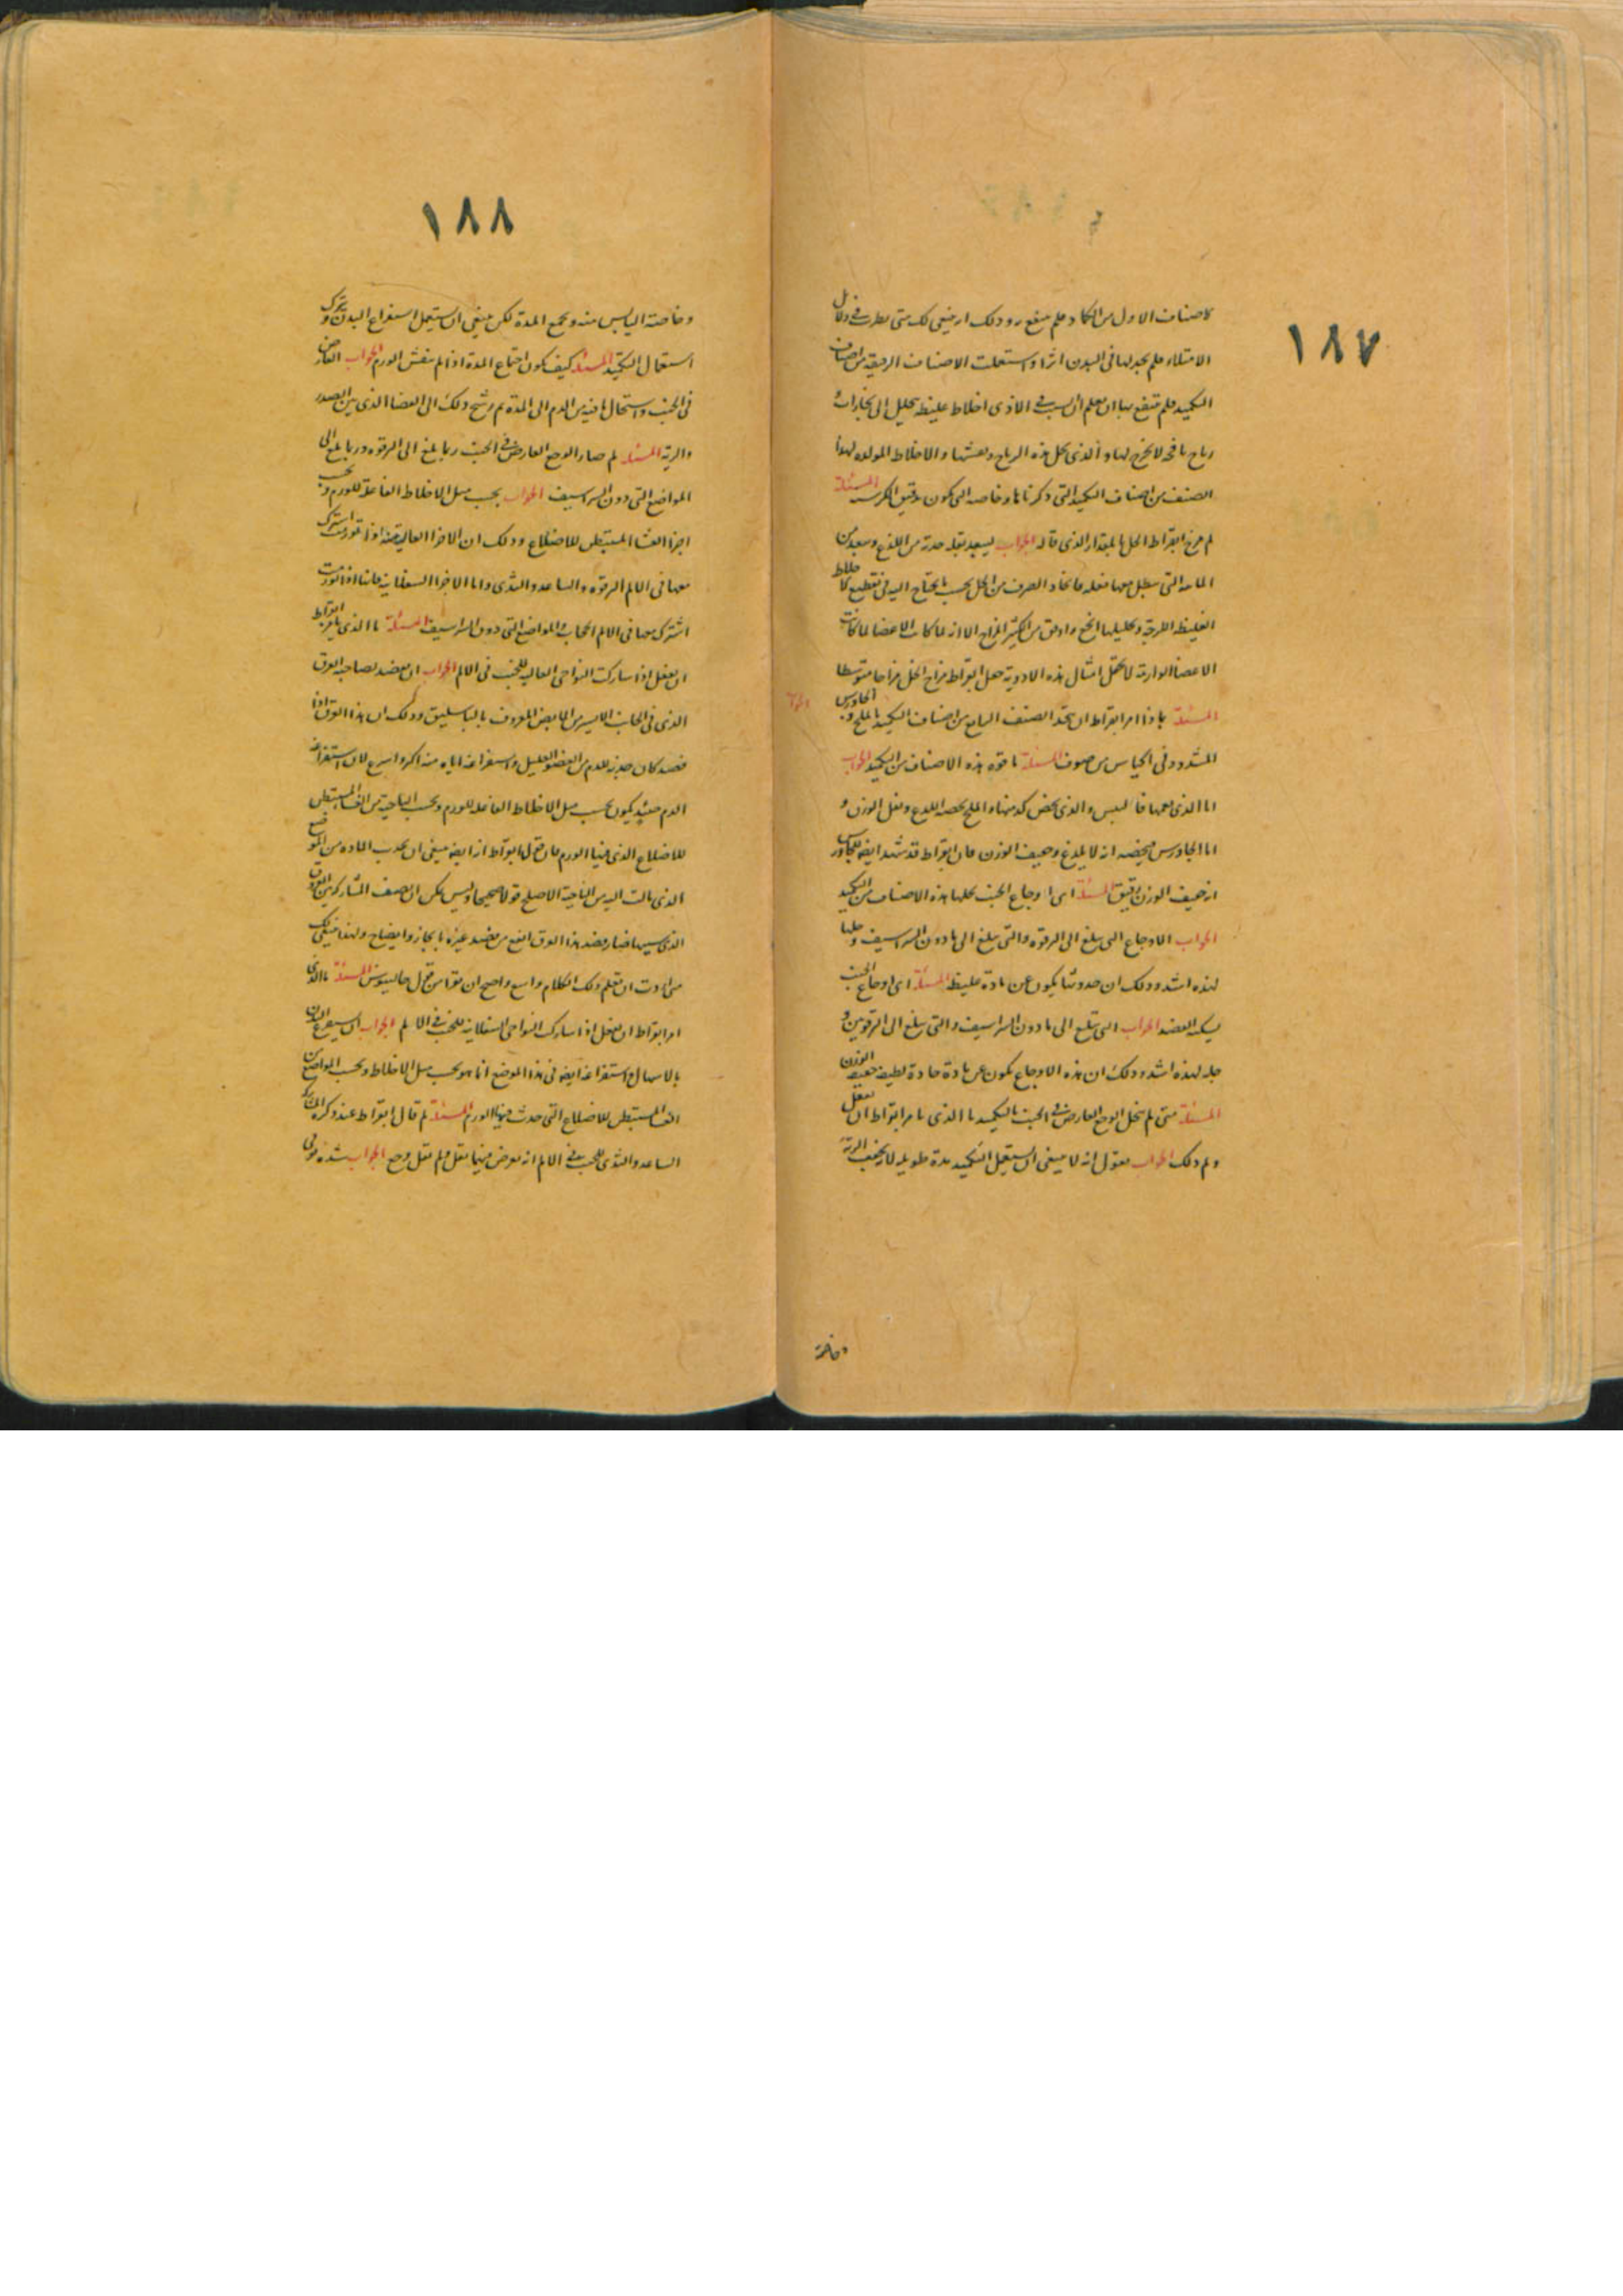 ١٨٧
الاصناف الاول من الكماد فلم ينتفع بها وذلك انه ينبغي لك متى نظرت في دلائل
الامتلاء فلم تجد لها في البدن اثرا واستعملت الاصناف الرقيقة من اصناف
التكميد فلم تنتفع بها ان تعلم ان السبب في الاذى اخلاط غليظة تحليل الى بخارات
رياح نافخة لا تخرج لها والذي يحل هذه الرياح ويفشها والاخلاط المولدة لهذا
الصنف من اصناف التكميد التي ذكرناها وخاصة التي تكون بدقيق الكرسنة المسئلة
لم مزج ابقراط الخل بالمقدار الذي قاله الجواب ليبعد بقلة حدته من اللذع ويبعد من
المائية التي تبطل معها فعله فاتخاذ الصرف من الخل بحسب ما يحتاج اليه في تقطيع الاخلاط
الغليظة اللزجة وتحليلها انجع واوفق من الكثير المزاج الا انه لما كانت الاعضا لما كانت
الاعضا الوارمة لا تحتمل امثال هذه الادوية جعل ابقراط مزاج الخل مزاجا متوسطا
المسئلة لماذا امر ابقراط ان يتخذ الصنف السابع من اصناف التكميد بالملح والجاورس
المشدود في اكياس من صوف المسئلة ما قوة هذه الاصناف من التكميد الجواب
اما الذي يعمها فاليبس والذي يخص كل منها فالملح يخصه اللذع وثقل الوزن و
اما الجاورس فيخصه انه لا يلذع وخفيف الوزن فان ابقراط قد شهد ايضا للجاورس
انه خفيف الوزن رقيق المسئلة اي اوجاع الجنب يحللها هذه الاصناف من التكميد
الجواب الاوجاع التي تبلغ الى الترقوة والتي تبلغ الى ما دون الشراسيف وحلها
لهذه اشد وذلك ان حدوثها يكون عن مادة غليظة المسئلة اي اوجاع الجنب
يسكنه الفصد الجواب التي تبلغ الى ما دون الشراسيف والتي تبلغ الى الترقوتين و
حله لهذه اشد وذلك ان هذه الاوجاع تكون عن مادة حادة لطيفة خفيفة الوزن
المسئلة متى لم ينحل الوجع العارض في الجنب بالتكميد ما الذي يامر ابقراط ان يفعل
ولم ذلك الجواب نقول انه لا ينبغي ان يستعمل التكميد مدة طويلة لانه يجفف الرية
وخاصة
١٨٨
وخاصة اليابس منه ويجمع المدة لكن ينبغي ان يستعمل استفراغ البدن ويترك
استعمال التكميد المسئلة كيف يكون اجتماع المدة اذا لم ينفش الورم الجواب العارض
في الجنب واستحال ما فيه من الدم الى المدة ثم رشح ذلك الى الفضا الذي بين الصدر
والرية المسئلة لم صار الوجع العارض في الجنب ربما بلغ الى الترقوة وربما بلغ الى
المواضع التي دون الشراسيف الجواب بحسب ميل الاخلاط الفاعلة للورم وبحسب
اجزا الغشا المستبطن للاضلاع وذلك ان الاجزا العالية منه اذا تورمت اشترك
معها في الالم الترقوة والساعد والثدي واما الاجزا السفلانية فانها اذا تورمت
اشترك معها في الالم الحجاب والمواضع التي دون الشراسيف المسئلة ما الذي يامر ابقراط
ان يفعل اذا شاركت النواحي العالية للجنب في الالم الجواب ان يفصد لصاحبه العرق
الذي في الجانب الايسر من المابض المعروف بالباسليق وذلك ان هذا العرق اذا
فصد كان جذبه للدم من العضو العليل واستفراغه اياه منه اكثر واسرع لان استفراغ
الدم حينئذ يكون بحسب ميل الاخلاط الفاعلة للورم وبحسب الناحية من الغشا المستبطن
للاضلاع الذي فيها الورم فان قول ابقراط انه ايضا ينبغي ان يجذب المادة من الموضع
الذي مالت اليه من الناحية الاصلح قولا صحيحا وليس يمكن ان نصف المشاركة من العروق
الذي بسببها صار فصد هذا العرق انفع من فصد غيره بايجاز وايضاح ولهذا ينبغي لك
متى اردت ان تعلم ذلك الكلام واسع واضح ان تقرا من قول جالينوس المسئلة ما الذي
امر ابقراط ان يفعل اذا شاركت النواحي السفلانية للجنب في الالم الجواب ان يستفرغ البدن
بالاسهال واستفراغه ايضا في هذا الموضع انما هو بحسب ميل الاخلاط وبحسب المواضع من
الغشا المستبطن للاضلاع التي حدث فيها الورم المسئلة لم قال ابقراط عند ذكره مشاركة
الساعد والثدي للجنب في الالم انه يعرض فيهما ثقل ولم يقل وجع الجواب